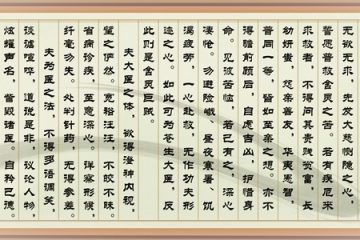 无欲无求，先发大慈恻隐之心，
誓愿普救含灵之苦。若有疾厄来
求救者，不得问其贵贱贫富，长
幼妍蚩，怨亲善友，华夷愚智，
普同一等，皆如至亲之想。亦不
得瞻前顾后，自虑吉凶，护惜身
命。见彼苦恼，若己有之，深心
凄怆。勿避险巇、昼夜寒暑、饥
渴疲劳，一心赴救，无作功夫形
迹之心。如此可为苍生大医，反
此则是含灵巨贼。
夫大医之体，欲得澄神内视，
望之俨然。宽裕汪汪，不皎不昧。
省病诊疾，至意深心。详察形候，
纤毫勿失。处判针药，无得参差。
夫为医之法，不得多语调笑，
谈谑喧哗，道说是非，议论人物，
炫耀声名，訾毁诸医。自矜己德。